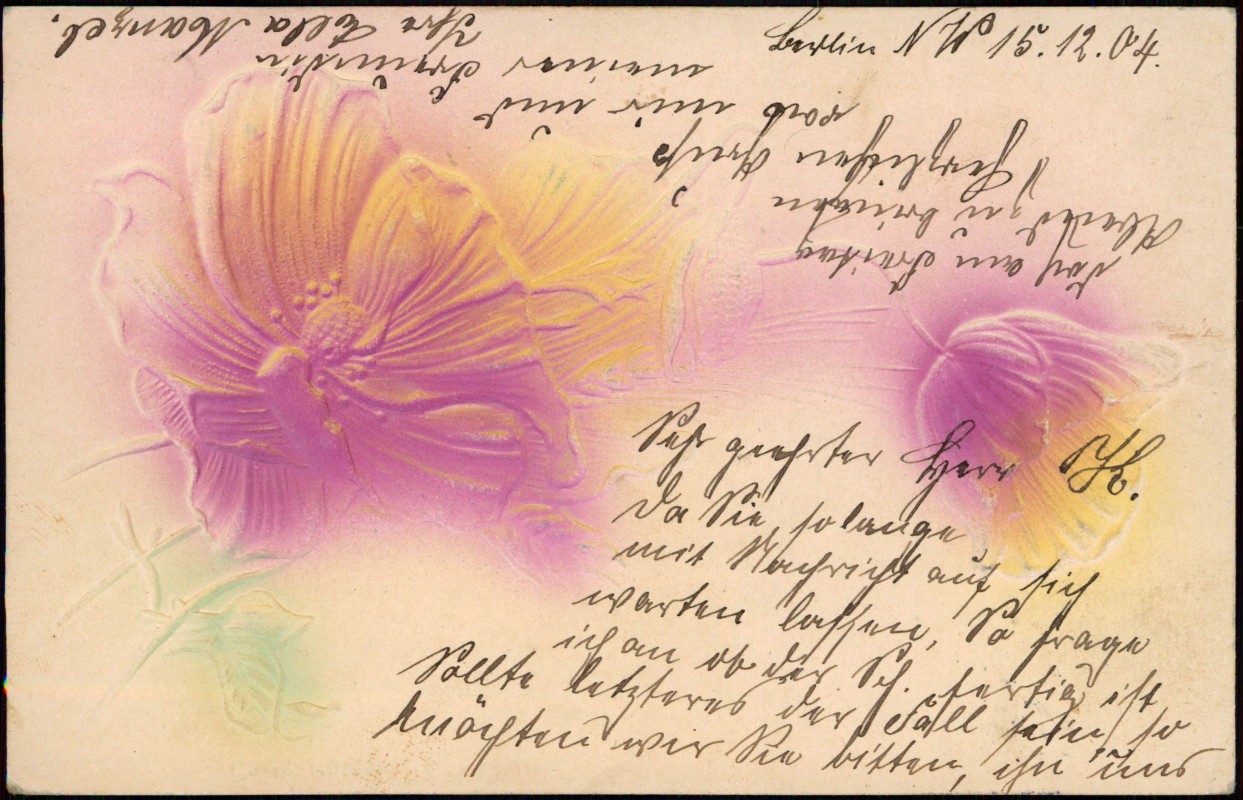 Berlin NW 15.12.04.
Sehr geehrter Herr K.
Da Sie so lange
mit Nachricht auf sich
warten lassen, So frage
ich an ob der Sch. fertig ist
Sollte letzteres der Fall sein, so
möchten wir Sie bitten, ihn uns
doch am Freitag
Abend zu bringen
Herzlichen Gruß
von mir und
meiner Freundin
Ihre Ella Manzel.